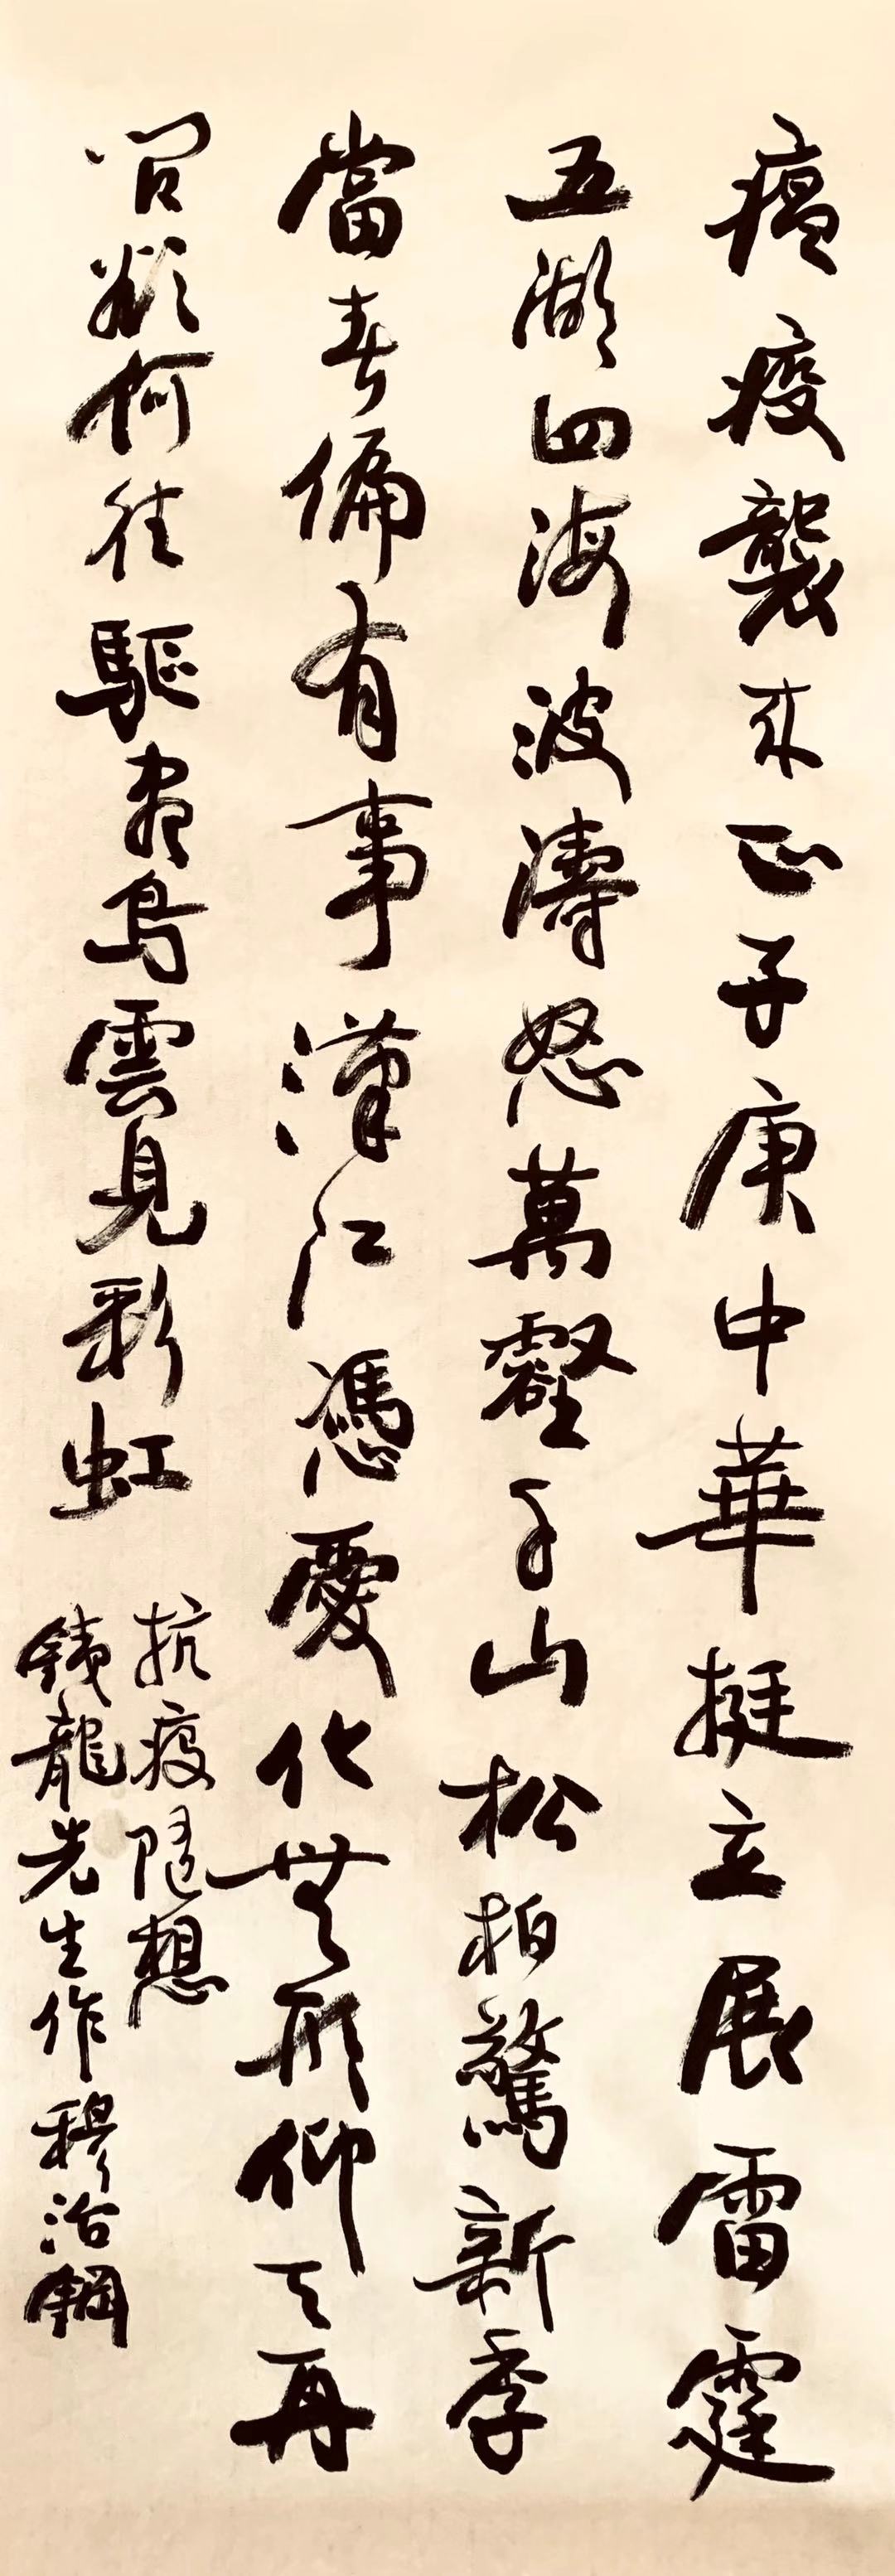 瘟疫襲来正子庚中華挺立展雷霆
五湖四海波濤怒萬壑千山松柏驚新季
當春偏有事漢江憑愛化無形仰天再
問愁何往驅盡烏雲見彩虹
抗疫随想
鉄龍先生作穆治鋼